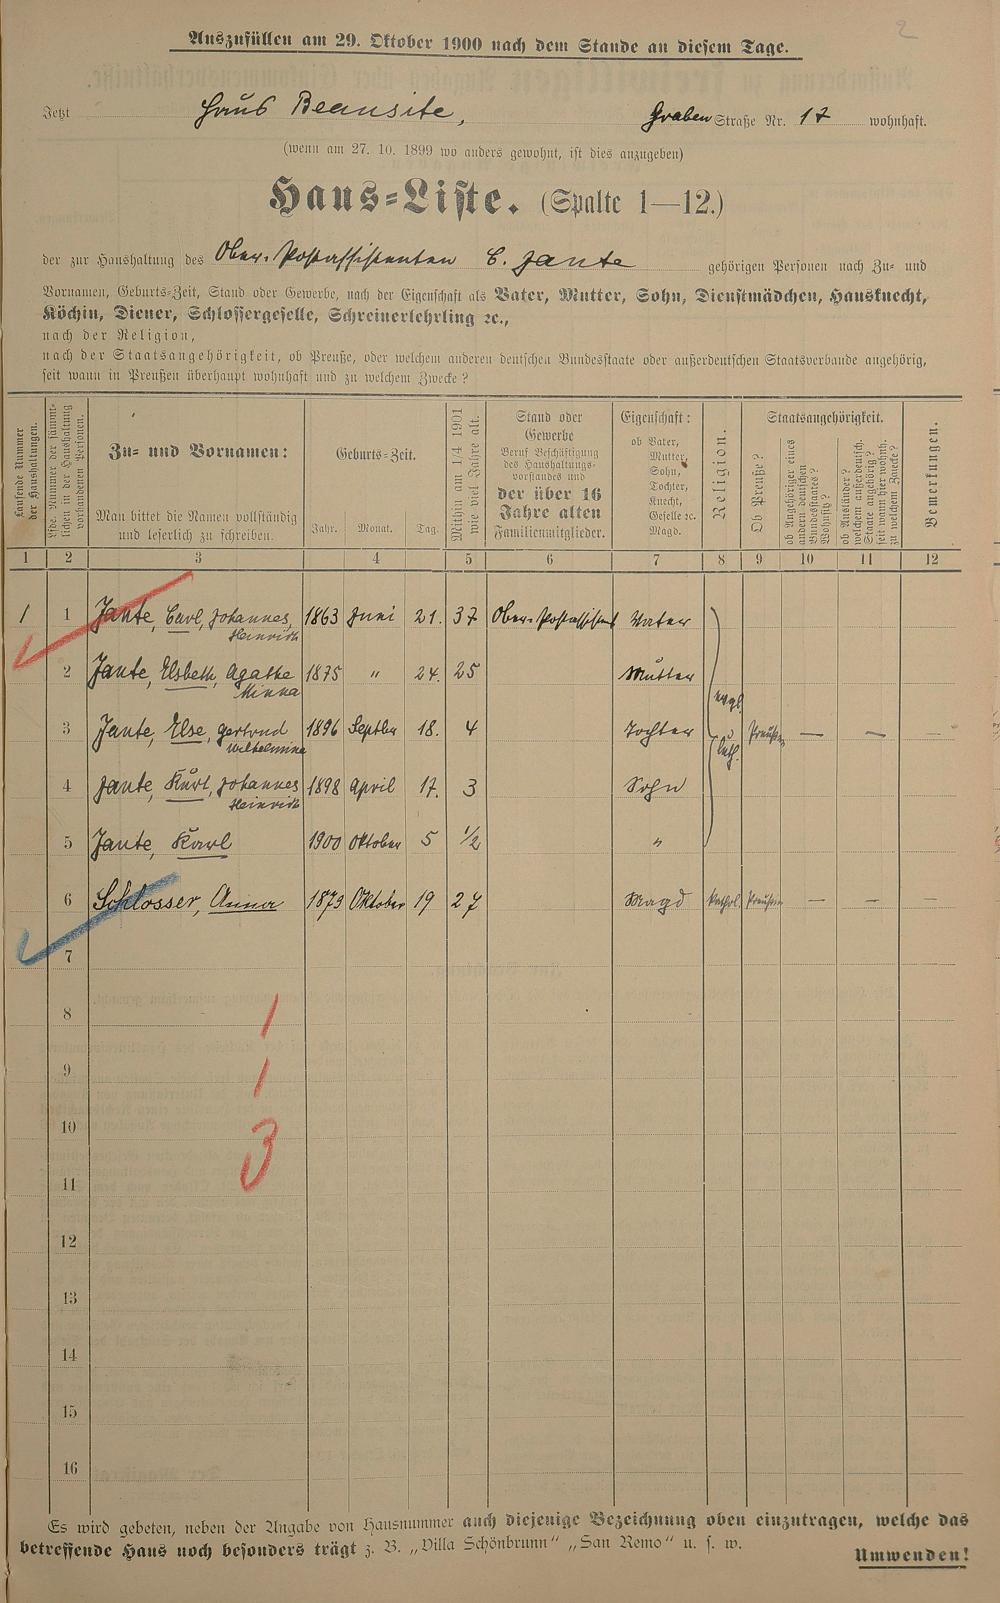 2
Auszufüllen am 29. Oktober 1900 nach dem Stande an diesem Tage.
Jetzt Haus Beausite, Graben Straße Nr. 17 wohnhaft.
(wenn am 27. 10. 1899 wo anders gewohnt, ist dies anzugeben)
Haus-Liste. (Spalte 1—12.)
der zur Haushaltung des Ober-Postassistenten C. Jante gehörigen Personen nach Zu- und
Vornamen, Geburts-Zeit, Stand oder Gewerbe, nach der Eigenschaft als Vater, Mutter, Sohn, Dienstmädchen, Hausknecht,
Köchin, Diener, Schlossergeselle, Schreinerlehrling ꝛc.,
nach der Religion,
nach der Staatsangehörigkeit, ob Preuße, oder welchem anderen deutschen Bundesstaate oder außerdeutschen Staatsverbande angehörig,
seit wann in Preußen überhaupt wohnhaft und zu welchem Zwecke?
Laufende Nummer
der Haushaltungen.
Lfde. Nummer der sämmt-
lichen in der Haushaltung
vorhandenen Personen.
Zu- und Vornamen:
Man bittet die Namen vollständig
und leserlich zu schreiben.
Geburts-Zeit.
Jahr. Monat. Tag.
Mithin am 1/4 1901
wie viel Jahre alt.
Stand oder
Gewerbe
Beruf Beschäftigung
des Haushaltungs-
vorstandes und
der über 16
Jahre alten
Familienmitglieder.
Eigenschaft:
ob Vater,
Mutter,
Sohn,
Tochter,
Knecht,
Geselle ꝛc.
Magd.
Religion.
Staatsangehörigkeit.
Ob Preuße?
ob Angehöriger eines
andern deutschen
Bundesstaates?
Wohnsitz?
ob Ausländer?
welchem außerdeutsch.
Staate angehörig?
seit wann hier wohnh.
zu welchem Zwecke?
Bemerkungen.
1 2 3 4 5 6 7 8 9 10 11 12
1 1 Jante, Carl, Johannes, 1863 Juni 21. 37 Ober-Postassistent Vater
Heinrich
2 Jante, Elsbeth, Agathe 1875 " 24. 25 Mutter
Minna
evgl.
3 Jante, Else, Gertrud 1896 Septber 18. 4 Tochter Preußen — — —
Wilhelmine
luth.
4 Jante, Kurt, Johannes 1898 April 17. 3 Sohn
Heinrich
5 Jante, Karl 1900 Oktober 5 1/2 "
6 Schlosser, Anna 1873 Oktober 19 27 Magd kathol. Preußen — — —
7
8
1
9
1
10
3
11
12
13
14
15
16
Es wird gebeten, neben der Angabe von Hausnummer auch diejenige Bezeichnung oben einzutragen, welche das
betreffende Haus noch besonders trägt z. B. „Villa Schönbrunn" „San Remo" u. s. w.
Umwenden!